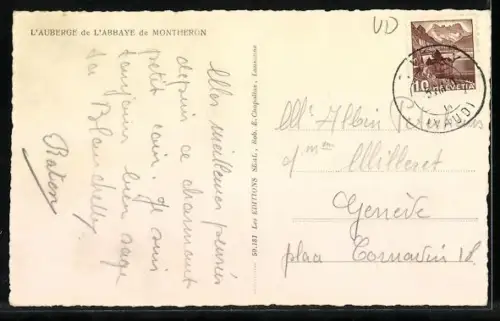 L'AUBERGE de L'ABBAYE de MONTHERON
VD
Mes meilleures pensées
depuis ce charmant
petit coin. Je suis
toujours bien sage
Baton
59.181 Les EDITIONS SEAL - Rob. E. Chapallaz, Lausanne
10 HELVETIA
(VAUD)
Mr Albin
d/ mm Milleret
Genève
place Cornavin 18